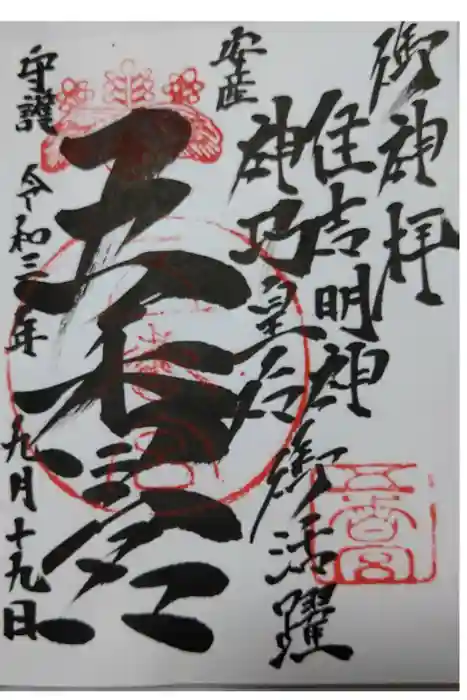 御神拝
住吉明神
神功皇后
御活躍
安産
五香宮
守護 令和三年 九月十九日
五香宮